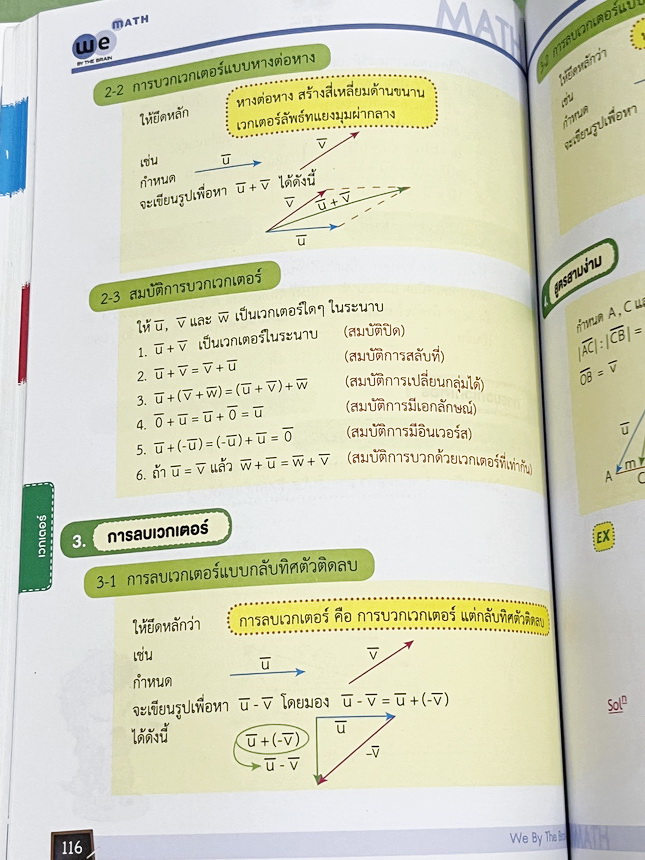 we MATH
BY THE BRAIN
MATH
2-2 การบวกเวกเตอร์แบบหางต่อหาง
ให้ยึดหลัก
หางต่อหาง สร้างสี่เหลี่ยมด้านขนาน
เวกเตอร์ลัพธ์ทแยงมุมผ่ากลาง
เช่น
กำหนด
u̅
v̅
จะเขียนรูปเพื่อหา u̅ + v̅ ได้ดังนี้
v̅
u̅ + v̅
u̅
2-3 สมบัติการบวกเวกเตอร์
ให้ u̅, v̅ และ w̅ เป็นเวกเตอร์ใดๆ ในระนาบ
1. u̅ + v̅ เป็นเวกเตอร์ในระนาบ (สมบัติปิด)
2. u̅ + v̅ = v̅ + u̅ (สมบัติการสลับที่)
3. u̅ + (v̅ + w̅) = (u̅ + v̅) + w̅ (สมบัติการเปลี่ยนกลุ่มได้)
4. 0̅ + u̅ = u̅ + 0̅ = u̅ (สมบัติการมีเอกลักษณ์)
5. u̅ + (-u̅) = (-u̅) + u̅ = 0̅ (สมบัติการมีอินเวอร์ส)
6. ถ้า u̅ = v̅ แล้ว w̅ + u̅ = w̅ + v̅ (สมบัติการบวกด้วยเวกเตอร์ที่เท่ากัน)
เวกเตอร์
3. การลบเวกเตอร์
3-1 การลบเวกเตอร์แบบกลับทิศตัวติดลบ
ให้ยึดหลักว่า
การลบเวกเตอร์ คือ การบวกเวกเตอร์ แต่กลับทิศตัวติดลบ
เช่น
กำหนด
u̅
v̅
จะเขียนรูปเพื่อหา u̅ - v̅ โดยมอง u̅ - v̅ = u̅ + (-v̅)
ได้ดังนี้
u̅ + (-v̅)
u̅ - v̅
u̅
-v̅
116
We By The Brain
MATH
3-2 การลบเวกเตอร์แบบ
ให้ยึดหลักว่า
เช่น
กำหนด
จะเขียนรูปเพื่อหา
สูตรสามง่าม
กำหนด A, C และ
|A̅C̅| : |C̅B̅| =
O̅B̅ = v̅
u̅
A
m
C
EX
Solⁿ